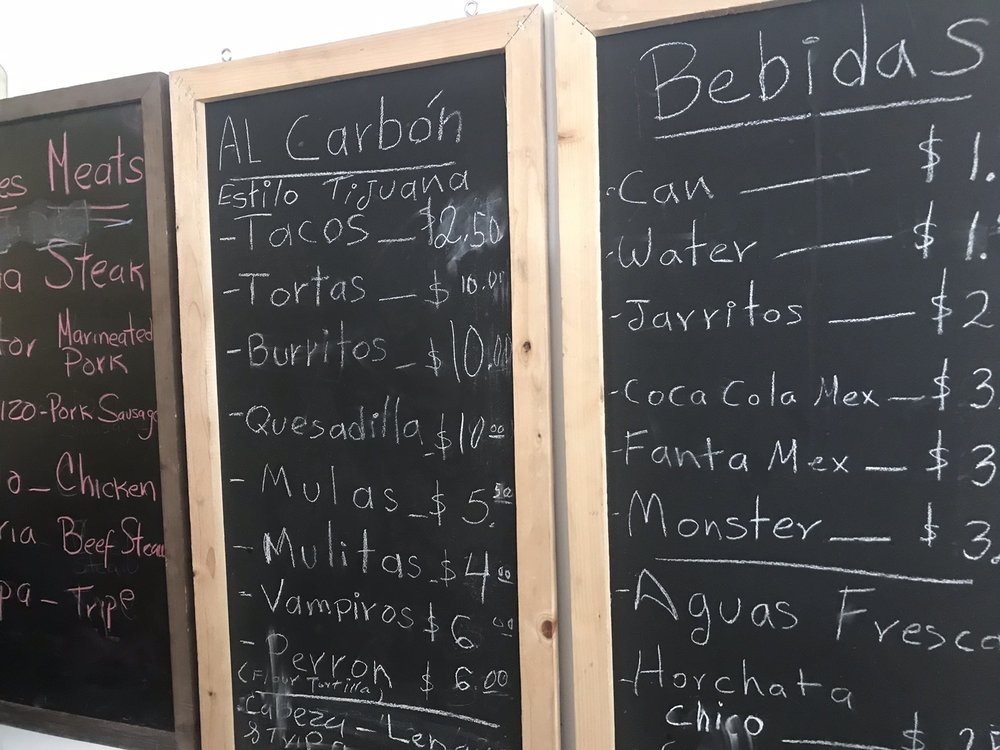 es Meats
a Steak
tor Marineated
Pork
izo-Pork Sausage
o - Chicken
ria Beef Stew
pa - Tripe
AL Carbón
Estilo Tijuana
-Tacos - $2.50
-Tortas - $10.00
-Burritos $10.00
-Quesadilla - $10.00
-Mulas - $5.50
-Mulitas - $4.00
-Vampiros $6.00
-Perron $6.00
(Flour Tortilla)
Cabeza - Leng
& Tripa
Bebidas
-Can — $1.
-Water — $1.
-Jarritos — $2
-Coca Cola Mex — $3
-Fanta Mex — $3
-Monster — $3.
-Aguas Fresca
-Horchata
Chico — $2